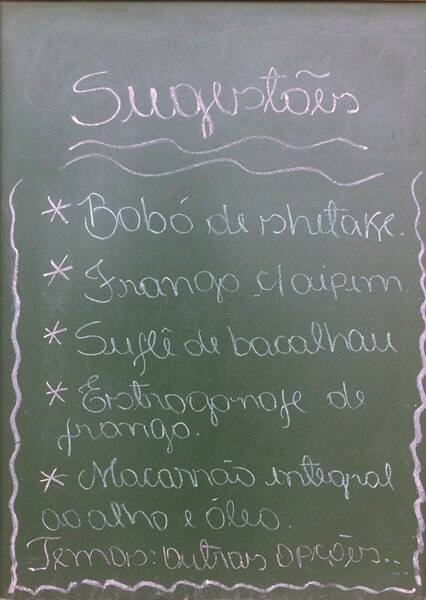 Sugestões
* Bobó de shitake.
* Frango c/aipim
* Suflê de bacalhau
* Estrogonofe de
frango.
* Macarrão integral
ao alho e óleo.
Temos: outras opções..